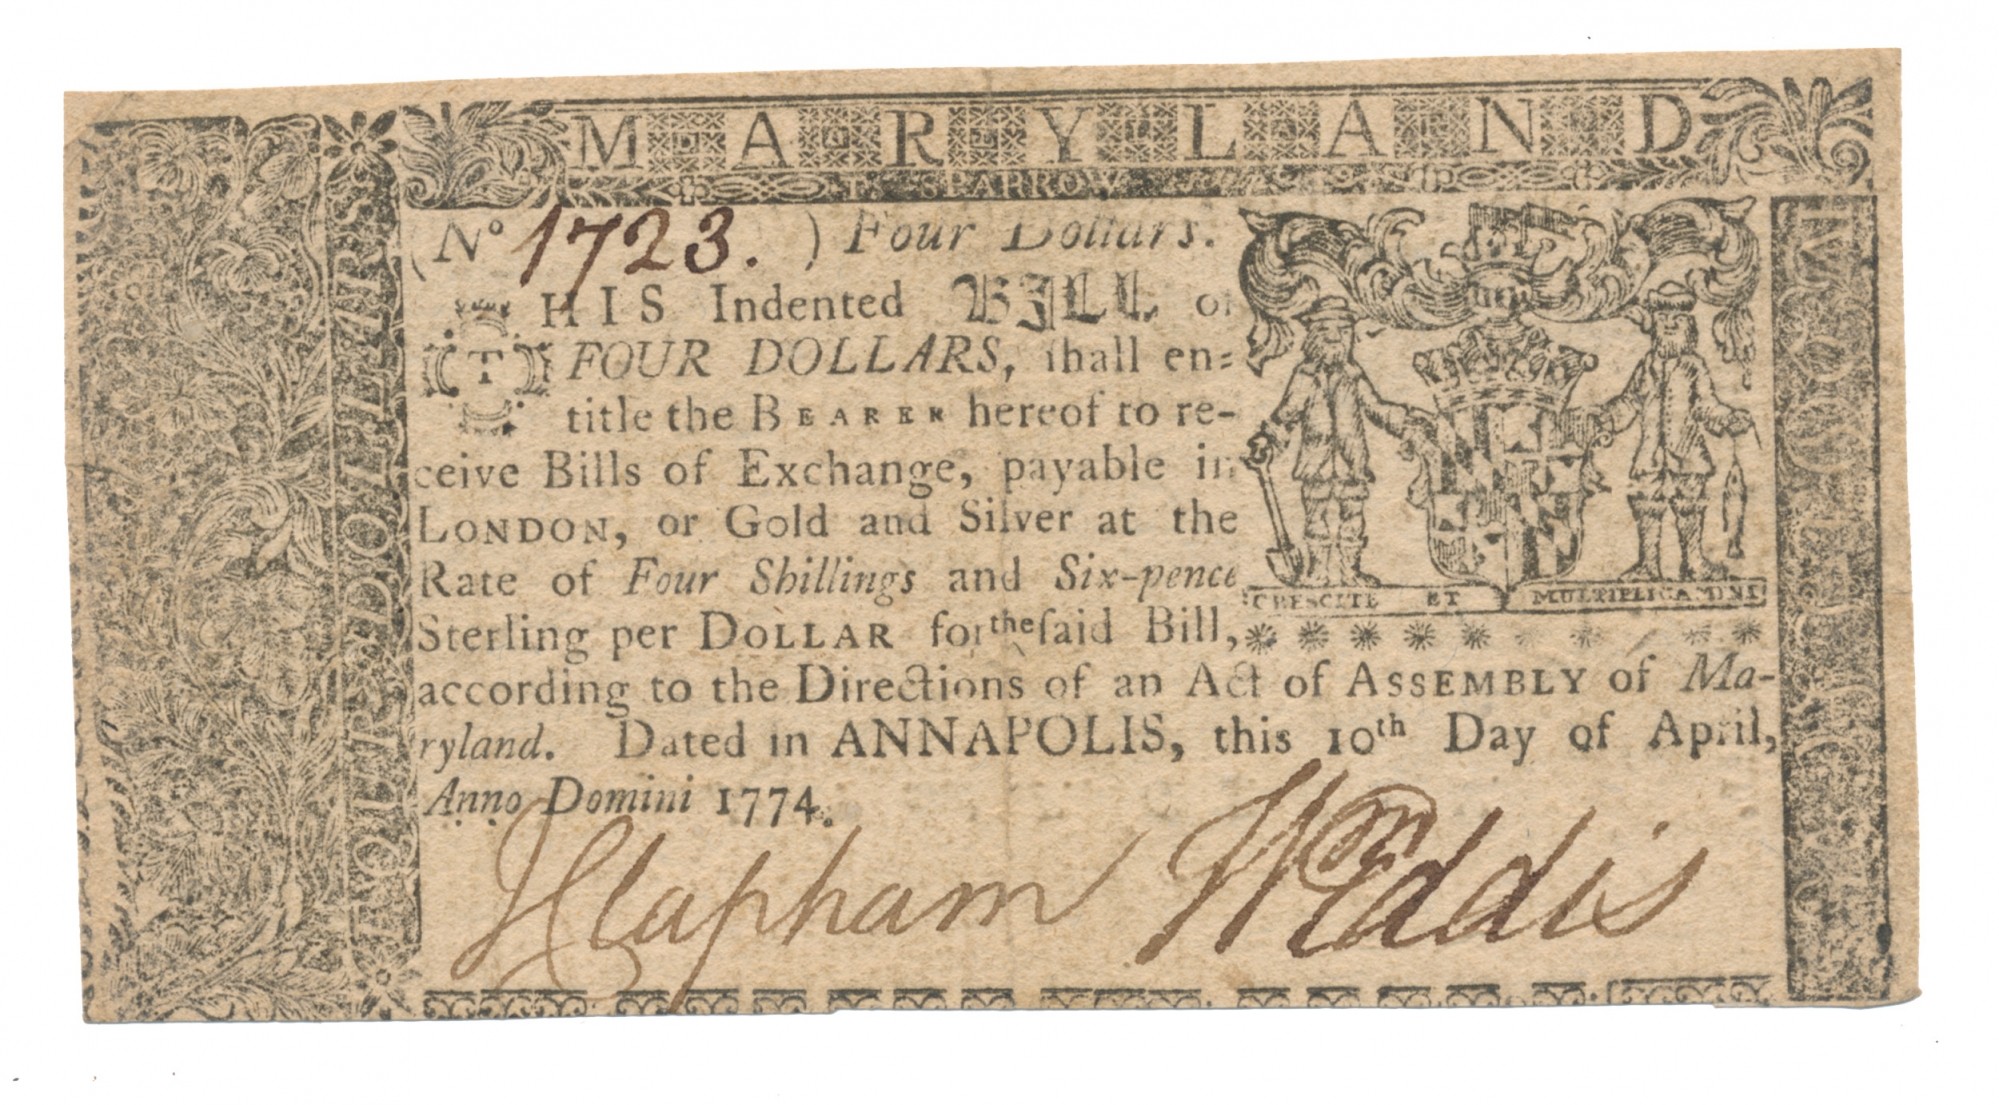 MARYLAND
T. SPARROW
FOUR DOLLARS
(No 1723. ) Four Dollars.
THIS Indented BILL of
FOUR DOLLARS, ſhall en=
title the BEARER hereof to re-
ceive Bills of Exchange, payable in
LONDON, or Gold and Silver at the
Rate of Four Shillings and Six-pence
Sterling per DOLLAR for the ſaid Bill,
according to the Directions of an Act of ASSEMBLY of Ma-
ryland. Dated in ANNAPOLIS, this 10th Day of April,
Anno Domini 1774.
CRESCITE ET MULTIPLICAMINI
JClapham Wm Eddis